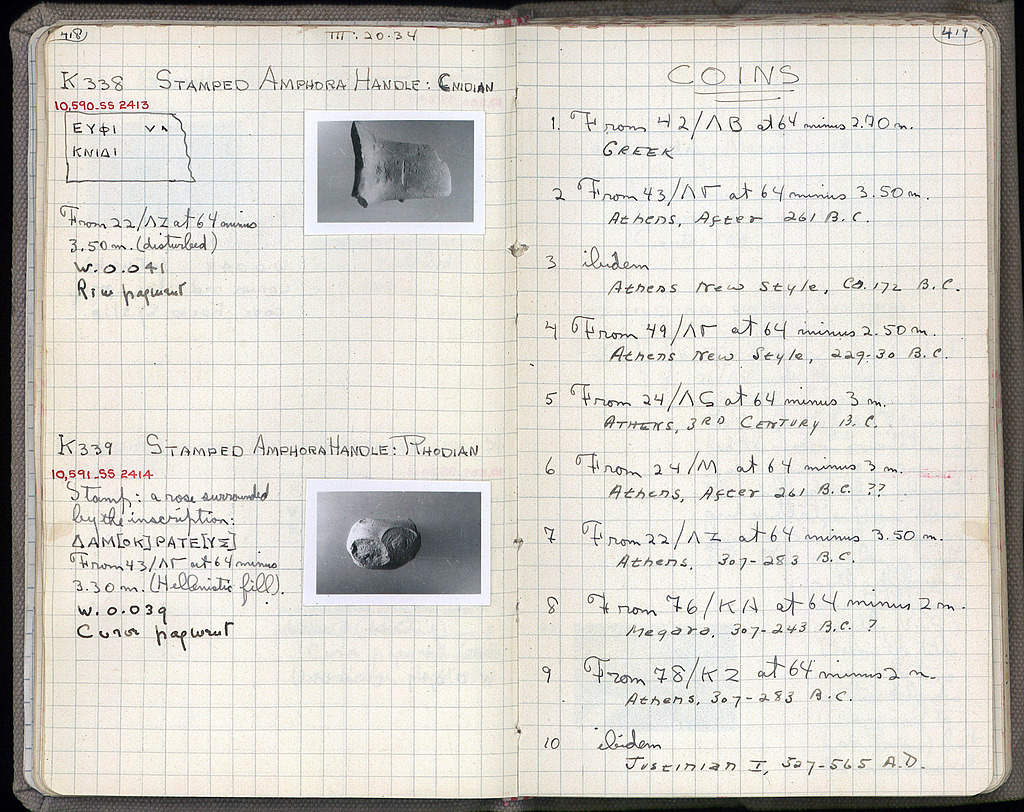 418
III:20-34
K 338 STAMPED AMPHORA HANDLE: CNIDIAN
10,590_SS 2413
ΕΥΦΙ
ΚΝΙΔΙ
From 22/ΛΖ at 64 minus
3.50 m. (disturbed)
W. 0.041
Rim fragment
K 339 STAMPED AMPHORA HANDLE: RHODIAN
10,591_SS 2414
Stamp: a rose surrounded
by the inscription:
ΔΑΜ[ΟΚ]ΡΑΤΕ[ΥΣ]
From 43/ΛΓ at 64 minus
3.30 m. (Hellenistic fill).
W. 0.039
Curve fragment
419
COINS
1. From 42/ΛΒ at 64 minus 2.70 m.
GREEK
2 From 43/ΛΓ at 64 minus 3.50 m.
Athens, After 261 B.C.
3 ibidem
Athens New Style, Ca. 172 B.C.
4 From 49/ΛΓ at 64 minus 2.50 m.
Athens New Style, 229-30 B.C.
5 From 24/ΛS at 64 minus 3 m.
ATHENS, 3RD CENTURY B.C.
6 From 24/M at 64 minus 3 m.
Athens, After 261 B.C. ??
7 From 22/ΛΖ at 64 minus 3.50 m.
Athens, 307-283 B.C.
8 From 76/ΚΑ at 64 minus 2 m.
Megara, 307-243 B.C. ?
9 From 78/ΚΖ at 64 minus 2 m.
Athens, 307-283 B.C.
10 ibidem
Justinian I, 527-565 A.D.